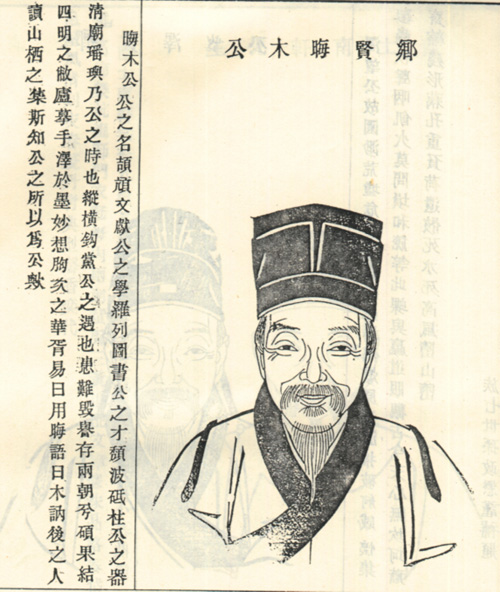 鄉賢晦木公
晦木公 公之名頡頏文獻公之學羅列圖書公之才頹波砥柱公之器
清廟璠璵乃公之時也縱橫鈎黨公之遇也患難毀譽存兩朝兮碩果結
四明之敝廬摹手澤於墨妙想胸次之華胥易曰用晦語曰木訥後之人
讀山栖之集斯知公之所以爲公歟